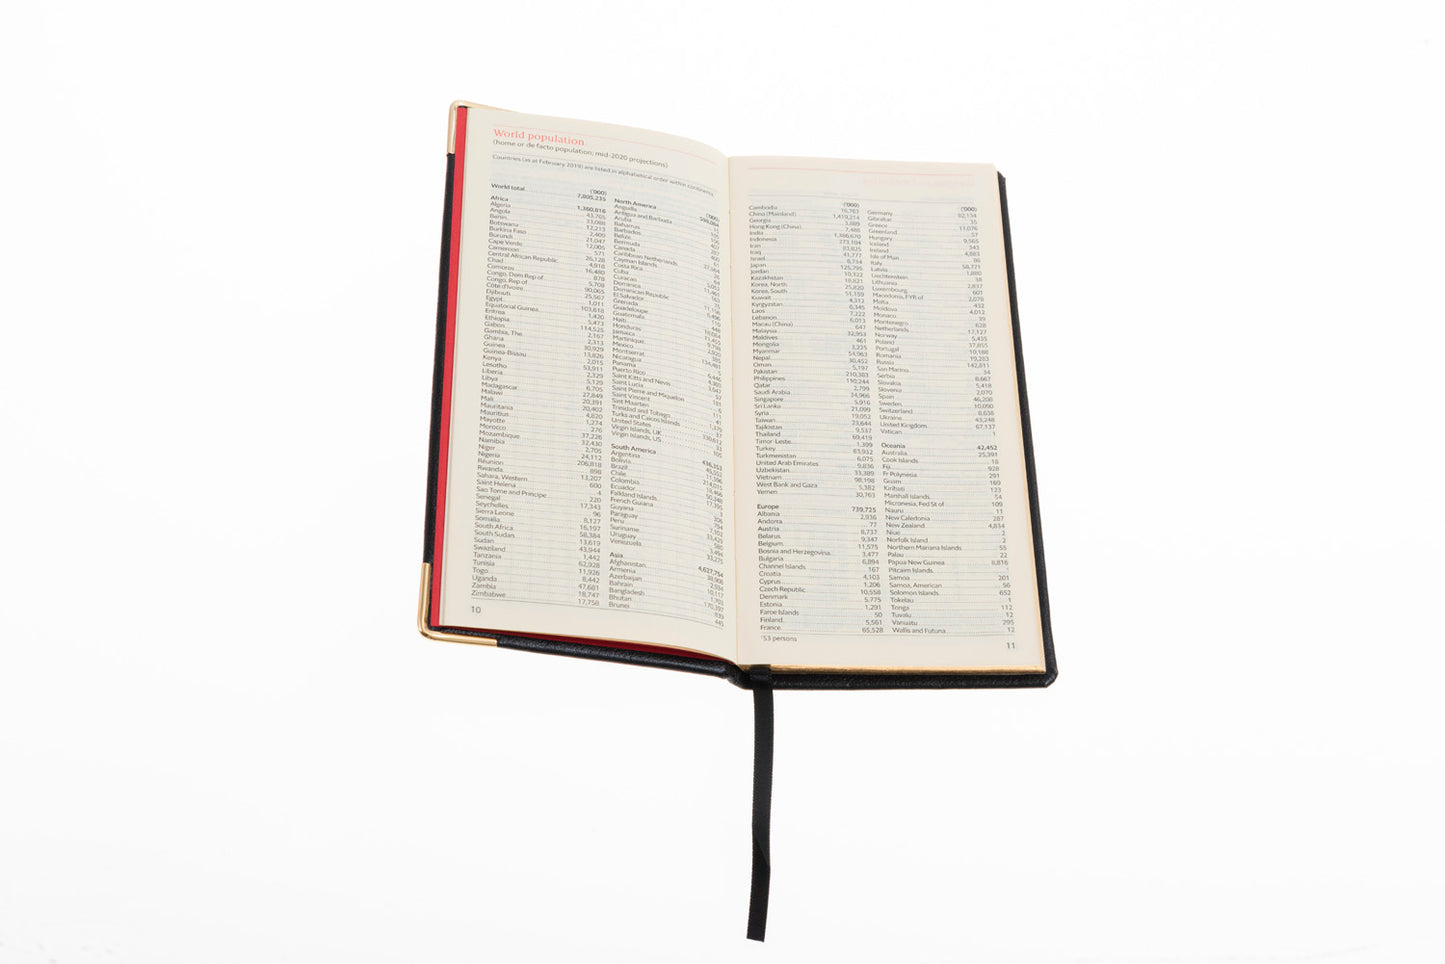 World population
(home or de facto population; mid-2020 projections)
Countries (as at February 2019) are listed in alphabetical order within continents
('000)
World total 7,805,235
Africa 1,360,816
Algeria 43,765
Angola 33,088
Benin 12,213
Botswana 2,409
Burkina Faso 21,047
Burundi 12,005
Cape Verde 571
Cameroon 26,128
Central African Republic 4,918
Chad 16,480
Comoros 878
Congo, Dem Rep of 5,708
Congo, Rep of 90,065
Côte d'Ivoire 25,567
Djibouti 1,011
Egypt 103,618
Equatorial Guinea 1,420
Eritrea 5,473
Ethiopia 114,525
Gabon 2,167
Gambia, The 2,313
Ghana 30,929
Guinea 13,826
Guinea-Bissau 2,015
Kenya 53,911
Lesotho 2,329
Liberia 5,129
Libya 6,705
Madagascar 27,849
Malawi 20,391
Mali 20,402
Mauritania 4,820
Mauritius 1,274
Mayotte 276
Morocco 37,226
Mozambique 32,430
Namibia 2,705
Niger 24,112
Nigeria 206,818
Réunion 898
Rwanda 13,207
Sahara, Western 600
Saint Helena 4
Sao Tome and Principe 220
Senegal 17,343
Seychelles 96
Sierra Leone 8,127
Somalia 16,197
South Africa 58,384
South Sudan 13,619
Sudan 43,944
Swaziland 1,442
Tanzania 62,928
Tunisia 11,926
Togo 8,442
Uganda 47,681
Zambia 18,747
Zimbabwe 17,758
10
('000)
North America
Anguilla
Antigua and Barbuda
Aruba
Bahamas
Barbados
Belize
Bermuda
Canada
Caribbean Netherlands
Cayman Islands
Costa Rica
Cuba
Curacao
Dominica
Dominican Republic
El Salvador
Grenada
Guadeloupe
Guatemala
Haiti
Honduras
Jamaica
Martinique
Mexico
Montserrat
Nicaragua
Panama
Puerto Rico
Saint Kitts and Nevis
Saint Lucia
Saint Pierre and Miquelon
Saint Vincent
Sint Maarten
Trinidad and Tobago
Turks and Caicos Islands
United States
Virgin Islands, UK
Virgin Islands, US 105
South America 436,353
Argentina 45,552
Bolivia 11,396
Brazil 214,015
Chile 18,466
Colombia 50,348
Ecuador 17,395
Falkland Islands 3
French Guiana 306
Guyana 794
Paraguay 7,103
Peru 33,425
Suriname 580
Uruguay 3,494
Venezuela 33,275
Asia 4,627,754
Afghanistan 38,908
Armenia 2,934
Azerbaijan 10,117
Bahrain 1,703
Bangladesh 170,397
Bhutan 839
Brunei 445
('000)
Cambodia 16,783
China (Mainland) 1,419,214
Georgia 3,889
Hong Kong (China) 7,488
India 1,386,670
Indonesia 273,184
Iran 83,825
Iraq 41,777
Israel 8,734
Japan 125,795
Jordan 10,322
Kazakhstan 18,821
Korea, North 25,820
Korea, South 51,159
Kuwait 4,312
Kyrgyzstan 6,345
Laos 7,222
Lebanon 6,013
Macau (China) 647
Malaysia 32,953
Maldives 461
Mongolia 3,225
Myanmar 54,963
Nepal 30,452
Oman 5,197
Pakistan 210,383
Philippines 110,244
Qatar 2,799
Saudi Arabia 34,966
Singapore 5,916
Sri Lanka 21,099
Syria 19,052
Taiwan 23,644
Tajikistan 9,537
Thailand 69,419
Timor-Leste 1,399
Turkey 83,932
Turkmenistan 6,075
United Arab Emirates 9,836
Uzbekistan 33,389
Vietnam 98,198
West Bank and Gaza 5,382
Yemen 30,763
Europe 739,725
Albania 2,936
Andorra 77
Austria 8,737
Belarus 9,347
Belgium 11,575
Bosnia and Herzegovina 3,477
Bulgaria 6,894
Channel Islands 167
Croatia 4,103
Cyprus 1,206
Czech Republic 10,558
Denmark 5,775
Estonia 1,291
Faroe Islands 50
Finland 5,561
France 65,528
'53 persons
('000)
Germany 82,134
Gibraltar 35
Greece 11,076
Greenland 57
Hungary 9,565
Iceland 343
Ireland 4,883
Isle of Man 86
Italy 58,721
Latvia 1,880
Liechtenstein 38
Lithuania 2,837
Luxembourg 601
Macedonia, FYR of 2,078
Malta 432
Moldova 4,012
Monaco 39
Montenegro 628
Netherlands 17,127
Norway 5,435
Poland 37,855
Portugal 10,188
Romania 19,283
Russia 142,811
San Marino 34
Serbia 8,667
Slovakia 5,418
Slovenia 2,070
Spain 46,208
Sweden 10,090
Switzerland 8,638
Ukraine 43,248
United Kingdom 67,137
Vatican 1
Oceania 42,452
Australia 25,391
Cook Islands 18
Fiji 928
Fr Polynesia 291
Guam 169
Kiribati 123
Marshall Islands 54
Micronesia, Fed St of 109
Nauru 11
New Caledonia 287
New Zealand 4,834
Niue 2
Norfolk Island 2
Northern Mariana Islands 55
Palau 22
Papua New Guinea 8,816
Pitcairn Islands
Samoa 201
Samoa, American 56
Solomon Islands 652
Tokelau 1
Tonga 112
Tuvalu 12
Vanuatu 295
Wallis and Futuna 12
11